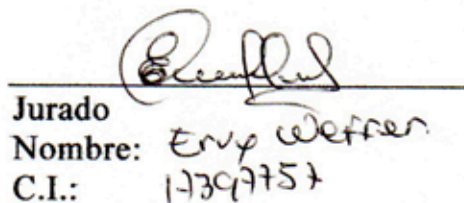 Jurado
Nombre: Ervp Weffer
C.I.: 17397757